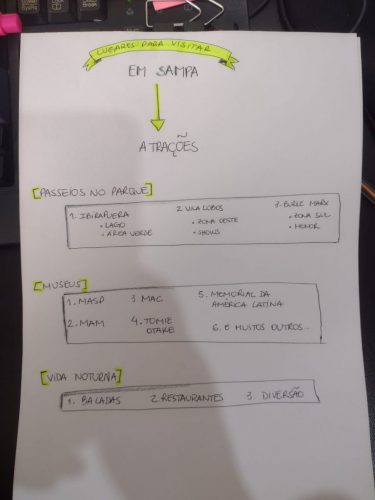 LUGARES PARA VISITAR
EM SAMPA
ATRAÇÕES
[PASSEIOS NO PARQUE]
1. IBIRAPUERA
• LAGO
• ÁREA VERDE
2 VILA LOBOS
• ZONA OESTE
• SHOWS
3. BURLE MARX
• ZONA SUL
• MENOR
[MUSEUS]
1. MASP
2. MAM
3. MAC
4. TOMIE
OTAKE
5. MEMORIAL DA
AMÉRICA LATINA
6. E MUITOS OUTROS...
[VIDA NOTURNA]
1. BALADAS
2. RESTAURANTES
3. DIVERSÃO